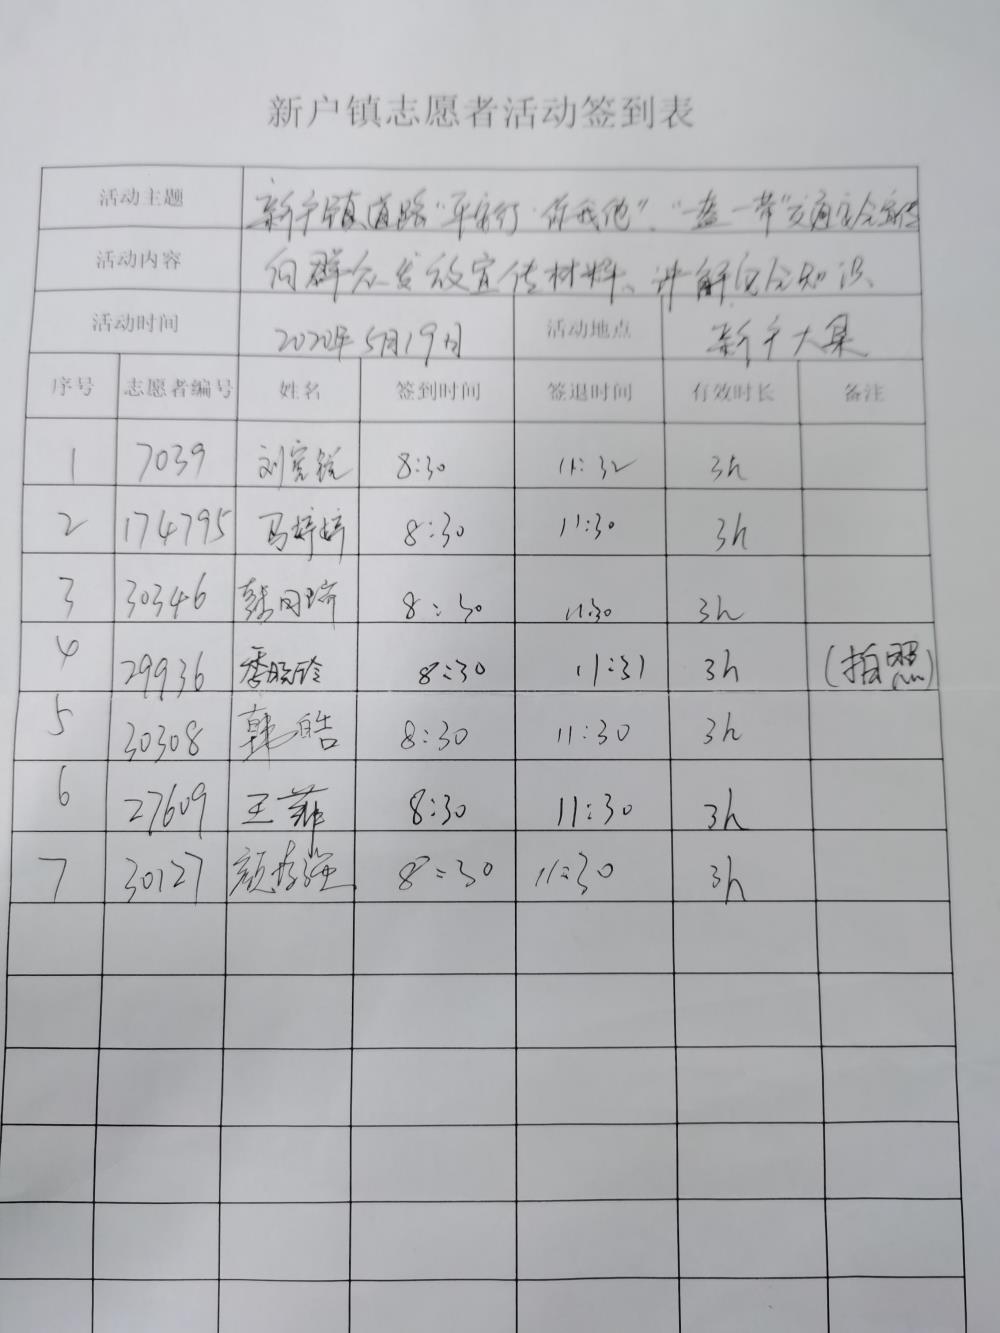 新户镇志愿者活动签到表
活动主题 新户镇道路“平安行·你我他”、“一盔一带”交通安全宣传
活动内容 向群众发放宣传材料、讲解安全知识、
活动时间 2020年5月19日 活动地点 新户大集
序号 志愿者编号 姓名 签到时间 签退时间 有效时长 备注
1 7039 刘 8:30 11:32 3h
2 174795 马婷婷 8:30 11:30 3h
3 30346 8:30 11:30 3h
4 29936 季 8:30 11:31 3h (拍照)
5 30308 韩皓 8:30 11:30 3h
6 27609 王菲 8:30 11:30 3h
7 30127 颜 强 8:30 11:30 3h